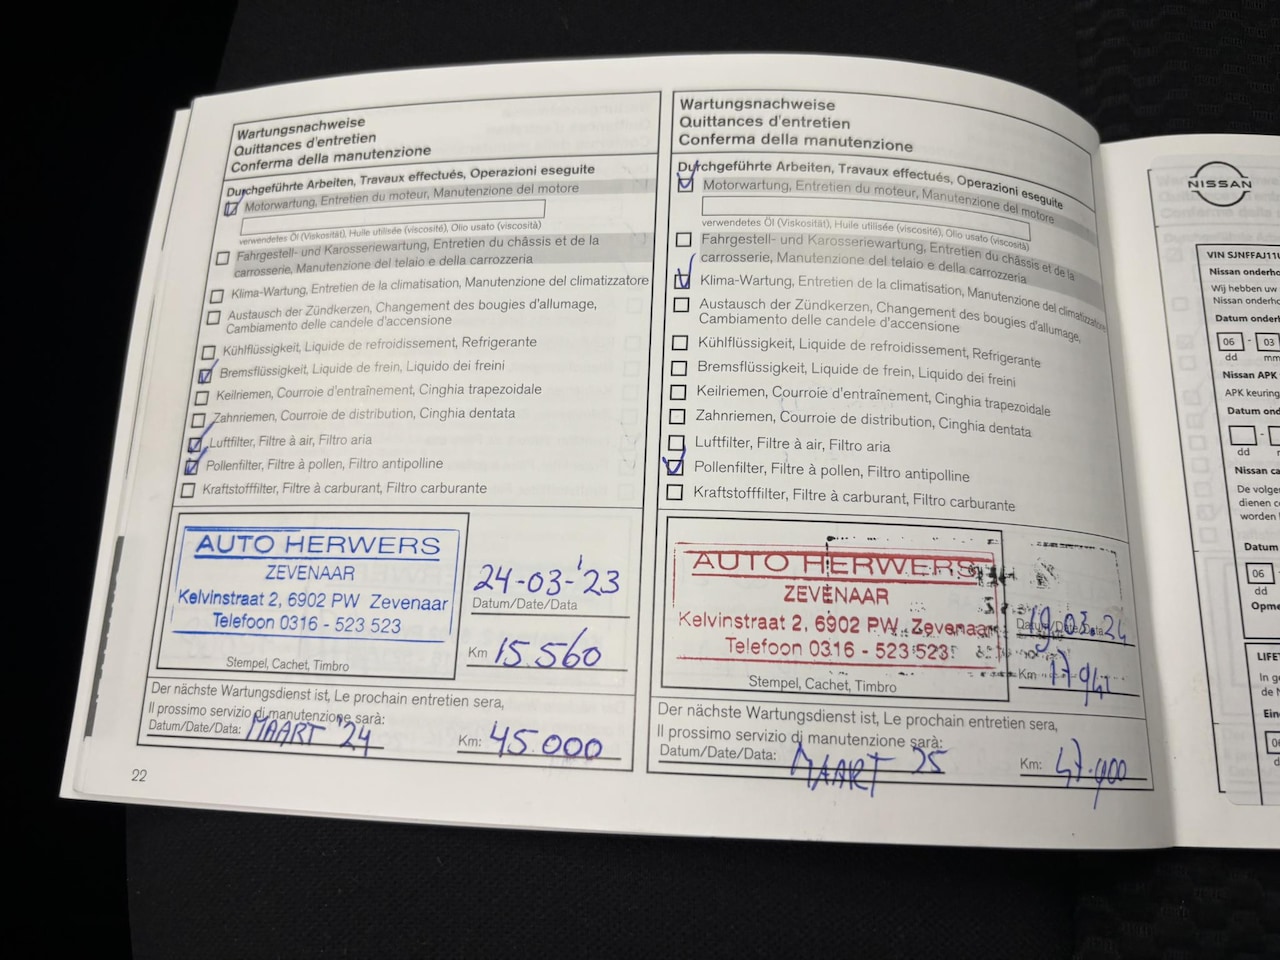 Wartungsnachweise
Quittances d'entretien
Conferma della manutenzione
Durchgeführte Arbeiten, Travaux effectués, Operazioni eseguite
Motorwartung, Entretien du moteur, Manutenzione del motore
verwendetes Öl (Viskosität), Huile utilisée (viscosité), Olio usato (viscosità)
Fahrgestell- und Karosseriewartung, Entretien du châssis et de la
carrosserie, Manutenzione del telaio e della carrozzeria
Klima-Wartung, Entretien de la climatisation, Manutenzione del climatizzatore
Austausch der Zündkerzen, Changement des bougies d'allumage,
Cambiamento delle candele d'accensione
Kühlflüssigkeit, Liquide de refroidissement, Refrigerante
Bremsflüssigkeit, Liquide de frein, Liquido dei freini
Keilriemen, Courroie d'entraînement, Cinghia trapezoidale
Zahnriemen, Courroie de distribution, Cinghia dentata
Luftfilter, Filtre à air, Filtro aria
Pollenfilter, Filtre à pollen, Filtro antipolline
Kraftstofffilter, Filtre à carburant, Filtro carburante
AUTO HERWERS
ZEVENAAR
Kelvinstraat 2, 6902 PW Zevenaar
Telefoon 0316 - 523 523
Stempel, Cachet, Timbro
24-03-'23
Datum/Date/Data
Km 15.560
Der nächste Wartungsdienst ist, Le prochain entretien sera,
Il prossimo servizio di manutenzione sarà:
Datum/Date/Data: MAART '24 Km: 45.000
22
Wartungsnachweise
Quittances d'entretien
Conferma della manutenzione
Durchgeführte Arbeiten, Travaux effectués, Operazioni eseguite
Motorwartung, Entretien du moteur, Manutenzione del motore
verwendetes Öl (Viskosität), Huile utilisée (viscosité), Olio usato (viscosità)
Fahrgestell- und Karosseriewartung, Entretien du châssis et de la
carrosserie, Manutenzione del telaio e della carrozzeria
Klima-Wartung, Entretien de la climatisation, Manutenzione del climatizzatore
Austausch der Zündkerzen, Changement des bougies d'allumage,
Cambiamento delle candele d'accensione
Kühlflüssigkeit, Liquide de refroidissement, Refrigerante
Bremsflüssigkeit, Liquide de frein, Liquido dei freini
Keilriemen, Courroie d'entraînement, Cinghia trapezoidale
Zahnriemen, Courroie de distribution, Cinghia dentata
Luftfilter, Filtre à air, Filtro aria
Pollenfilter, Filtre à pollen, Filtro antipolline
Kraftstofffilter, Filtre à carburant, Filtro carburante
AUTO HERWERS
ZEVENAAR
Kelvinstraat 2, 6902 PW Zevenaar
Telefoon 0316 - 523 523
Stempel, Cachet, Timbro
Datum/Date/Data
Km 17941
Der nächste Wartungsdienst ist, Le prochain entretien sera,
Il prossimo servizio di manutenzione sarà:
Datum/Date/Data: MAART 25 Km: 47.900
NISSAN
VIN SJNFFAJ11U
Nissan onderho
Wij hebben uw
Nissan onderho
Datum onderh
06 - 03
dd mm
Nissan APK
APK keuring
Datum ond
dd
Nissan ca
De volge
dienen c
worden
Datum
06
dd
Opme
LIFE
In ge
de N
Ein